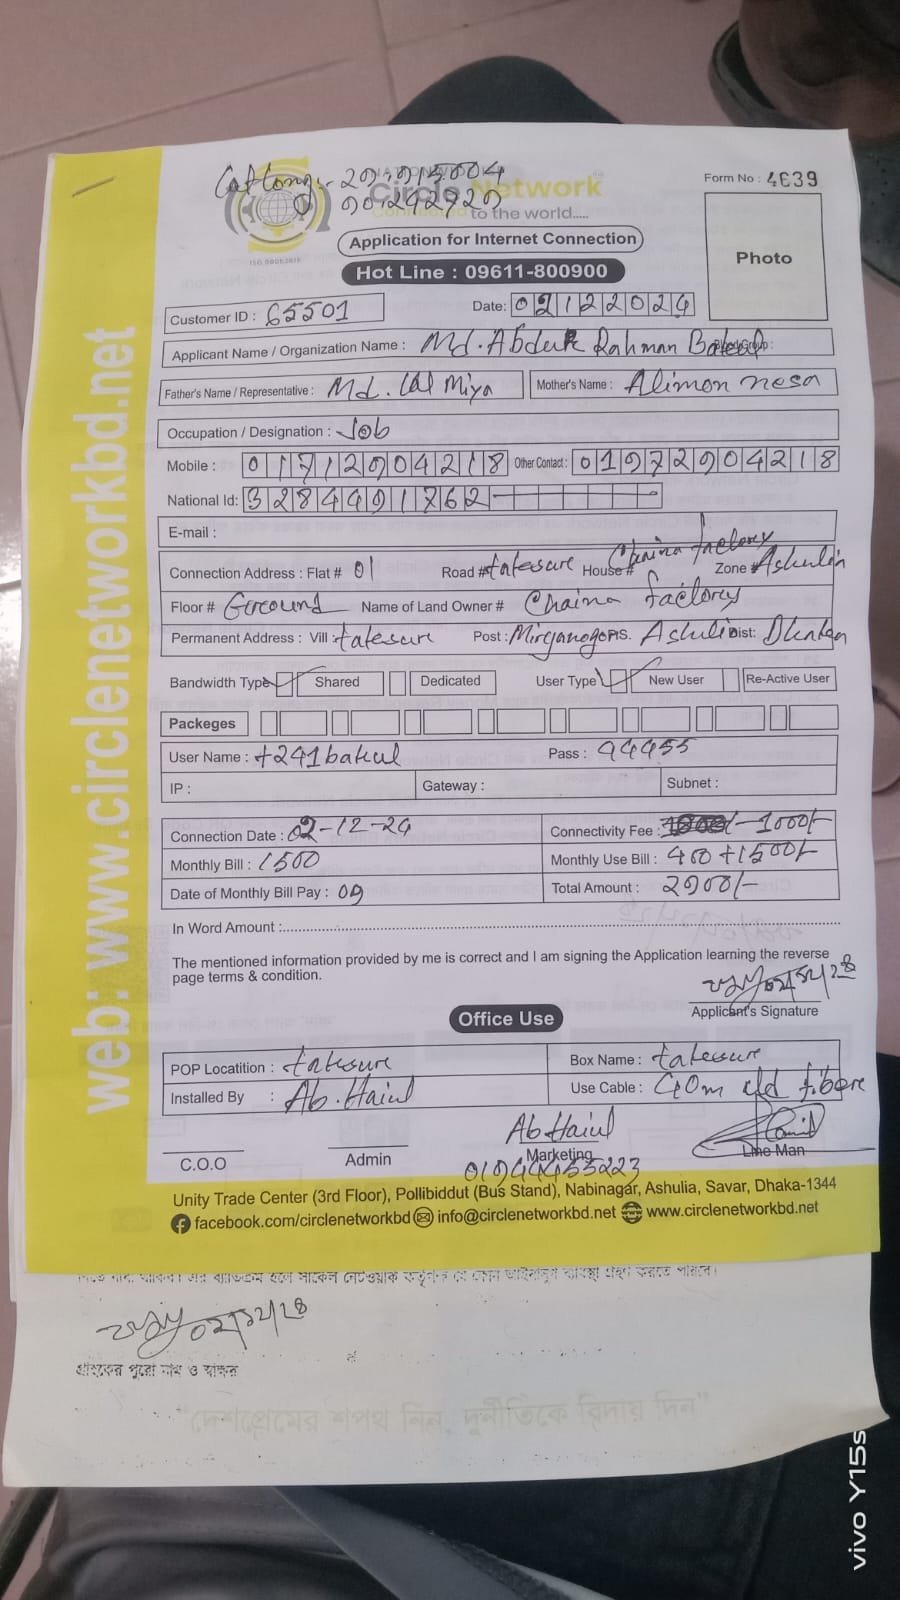 NATIONWIDE
Circle Network
Connected to the world.....
ISO 9001:2015
Form No : 4639
Photo
Application for Internet Connection
Hot Line : 09611-800900
Customer ID : 65501
Date: 02122024
Applicant Name / Organization Name : Md. Abdur Rahman Bakul
Father's Name / Representative : Md. Lal Miya Mother's Name : Alimon nesa
Occupation / Designation : Job
Mobile : 01712904218 Other Contact : 01972904218
National Id: 3284491762
E-mail :
Connection Address : Flat # 01 Road # tatesure House # Chaina factory Zone # Ashulia
Floor # Ground Name of Land Owner # Chaina factory
Permanent Address : Vill : tatesure Post : PS. Ashulia Dist: Dhaka
Bandwidth Type Shared Dedicated User Type New User Re-Active User
Packeges
User Name : t241bakul Pass : 44455
IP : Gateway : Subnet :
Connection Date : 02-12-24 Connectivity Fee : 1000/-
Monthly Bill : 1500 Monthly Use Bill : 400 + 1500/-
Date of Monthly Bill Pay : 09 Total Amount : 2900/-
In Word Amount :
The mentioned information provided by me is correct and I am signing the Application learning the reverse
page terms & condition.
Applicant's Signature
Office Use
POP Locatition : tatesure Box Name : tatesure
Installed By : Ab. Haiul Use Cable : 40m fibere
Ab Haiul
C.O.O Admin Marketing Line Man
Unity Trade Center (3rd Floor), Pollibiddut (Bus Stand), Nabinagar, Ashulia, Savar, Dhaka-1344
facebook.com/circlenetworkbd info@circlenetworkbd.net www.circlenetworkbd.net
web: www.circlenetworkbd.net
গ্রাহকের পুরো নাম ও স্বাক্ষর
"দেশপ্রেমের শপথ নিন, দুর্নীতিকে বিদায় দিন"
vivo Y15s